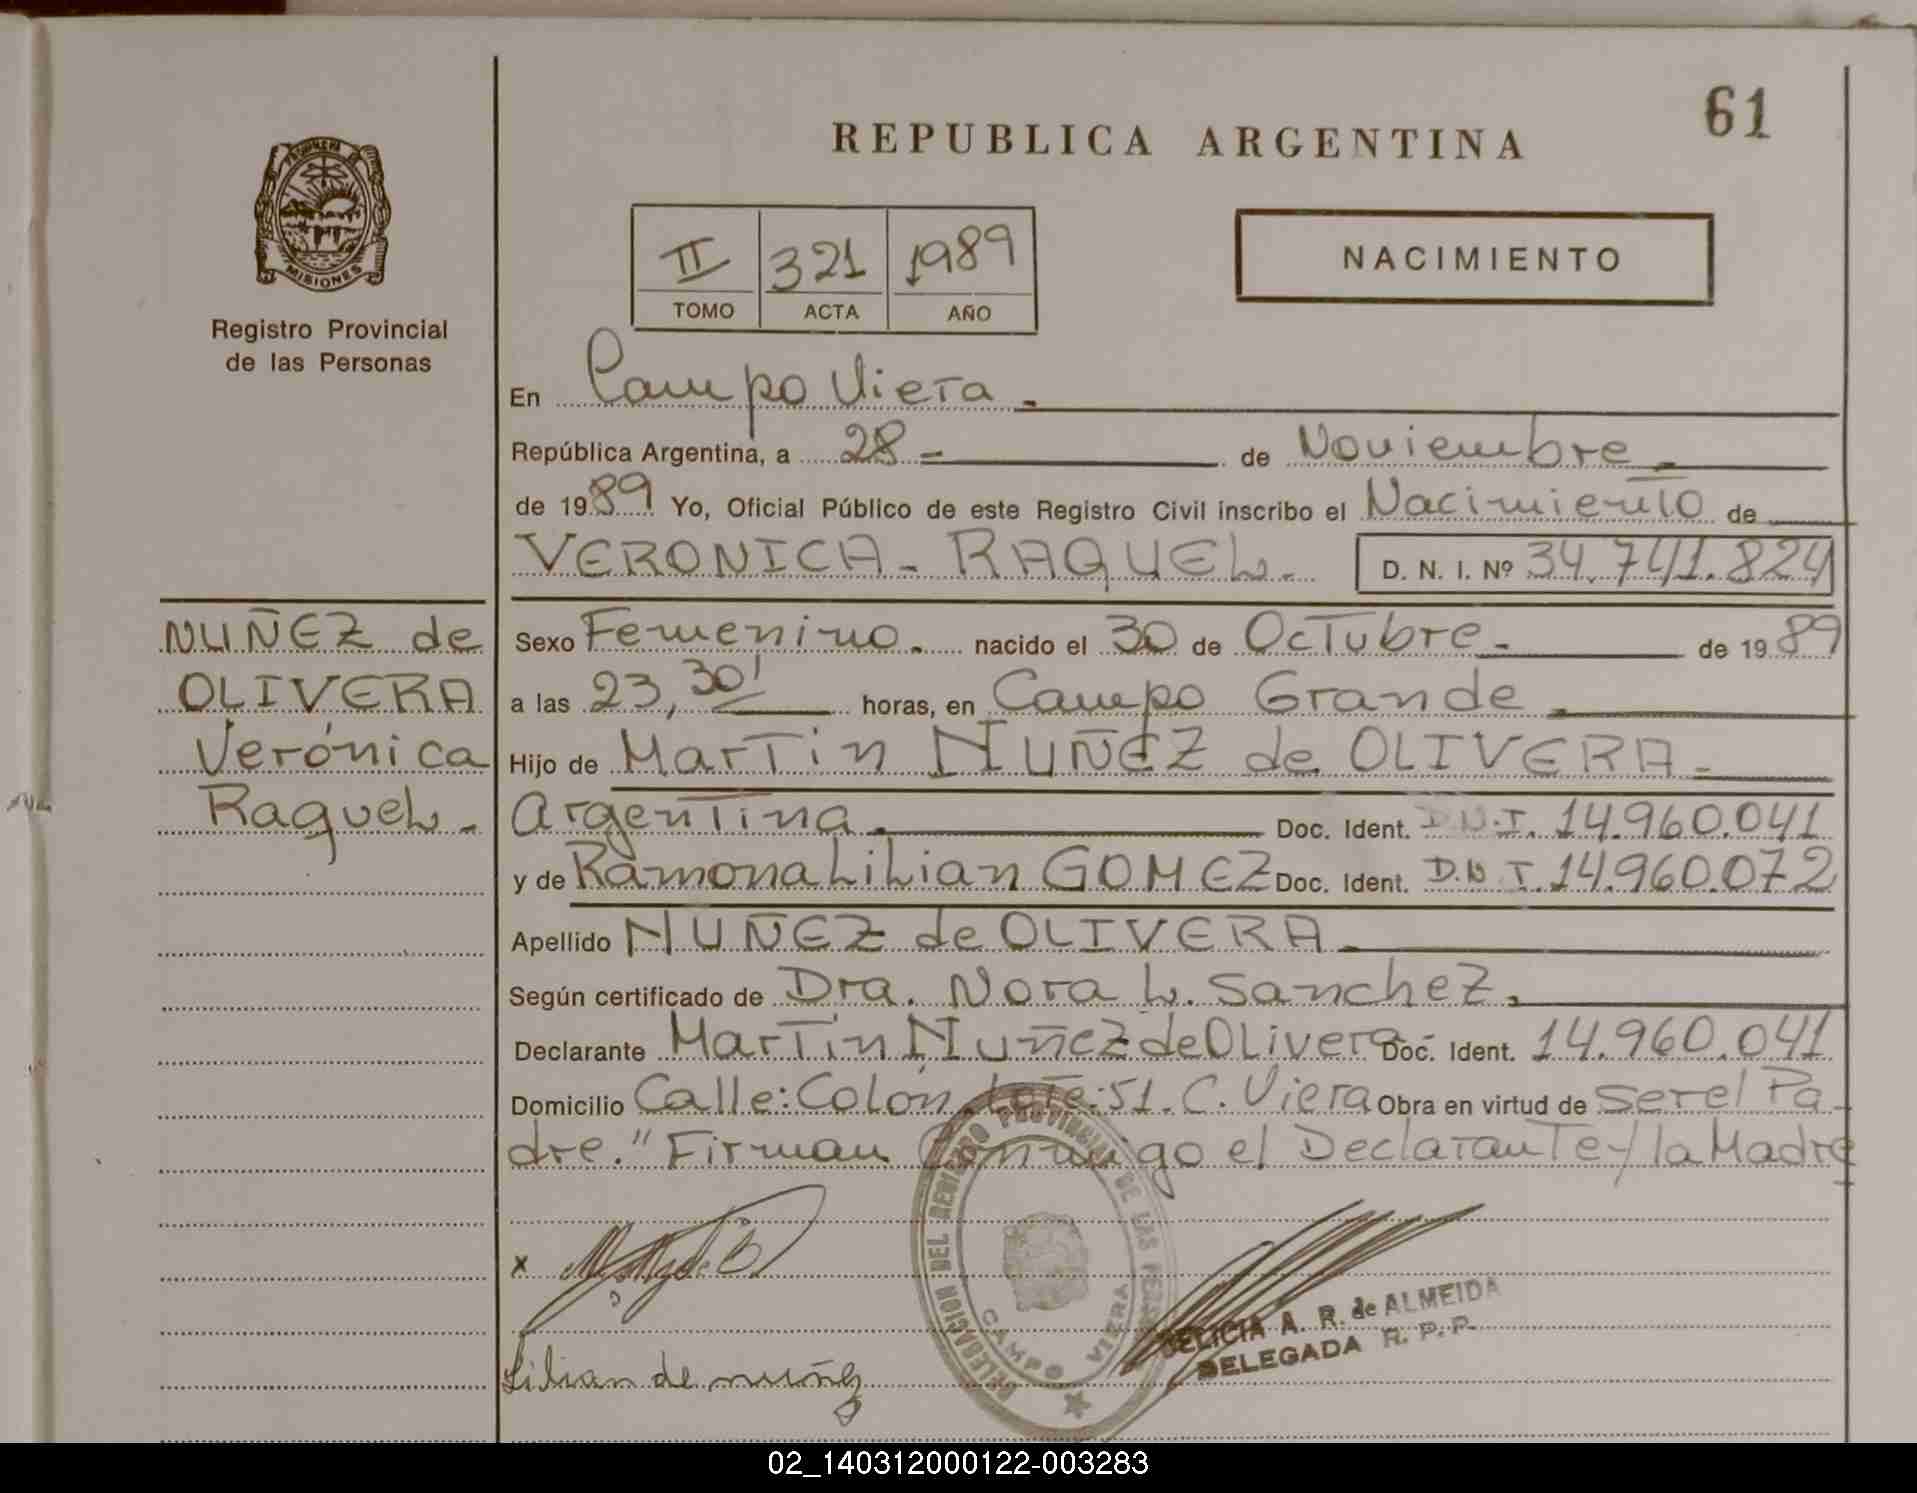 61
REPUBLICA ARGENTINA
MISIONES
Registro Provincial
de las Personas
II 321 1989
TOMO ACTA AÑO
NACIMIENTO
En Campo Viera.
República Argentina, a 28 - de Noviembre
de 1989 Yo, Oficial Público de este Registro Civil inscribo el Nacimiento de
VERONICA - RAQUEL - D. N. I. Nº 34.741.824
NUÑEZ de
OLIVERA
Verónica
Raquel -
Sexo Femenino. nacido el 30 de Octubre - de 1989
a las 23,30' horas, en Campo Grande
Hijo de Martin NUÑEZ de OLIVERA -
Argentina. Doc. Ident. D.N.I. 14.960.041
y de Ramona Lilian GOMEZ Doc. Ident. D.N.I. 14.960.072
Apellido NUÑEZ de OLIVERA -
Según certificado de Dra. Nora L. Sanchez.
Declarante Martin Nuñez de Olivera - Doc. Ident. 14.960.041
Domicilio Calle: Colón Lote: 51. C. Viera Obra en virtud de Ser el Pa-
dre." Firman Conmigo el Declarante y la Madre
x
Lilian de nuñez
DELEGACION DEL REGISTRO PROVINCIAL DE LAS
CAMPO VIERA
DELICIA A. R. de ALMEIDA
DELEGADA R. P. P.
02_140312000122-003283